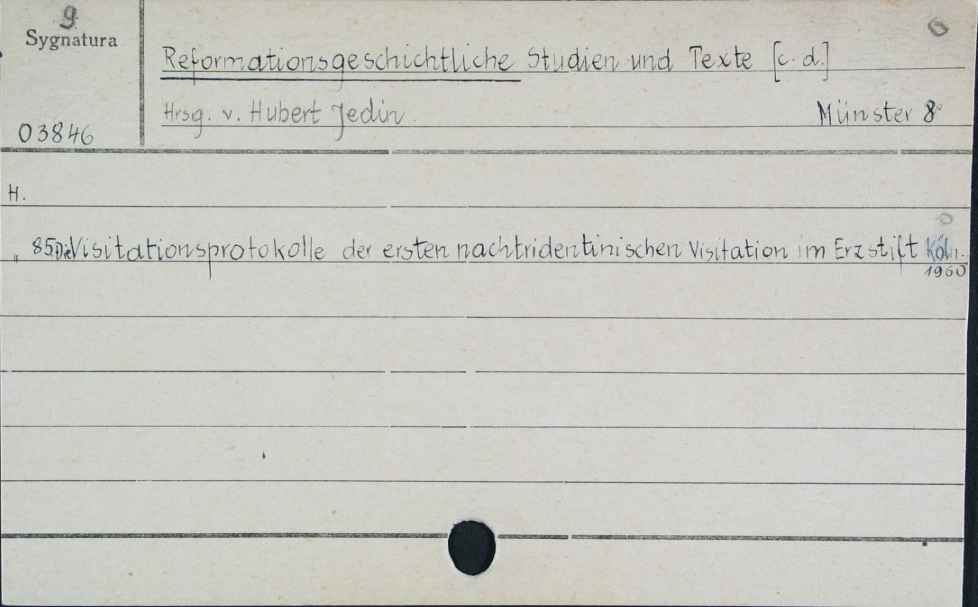 9
Sygnatura
03846
6
Reformationsgeschichtliche Studien und Texte [c. d.]
Hrsg. v. Hubert Jedin Münster 8°
H.
" 85 Die Visitationsprotokolle der ersten nachtridentinischen Visitation im Erzstift Köln.
1960